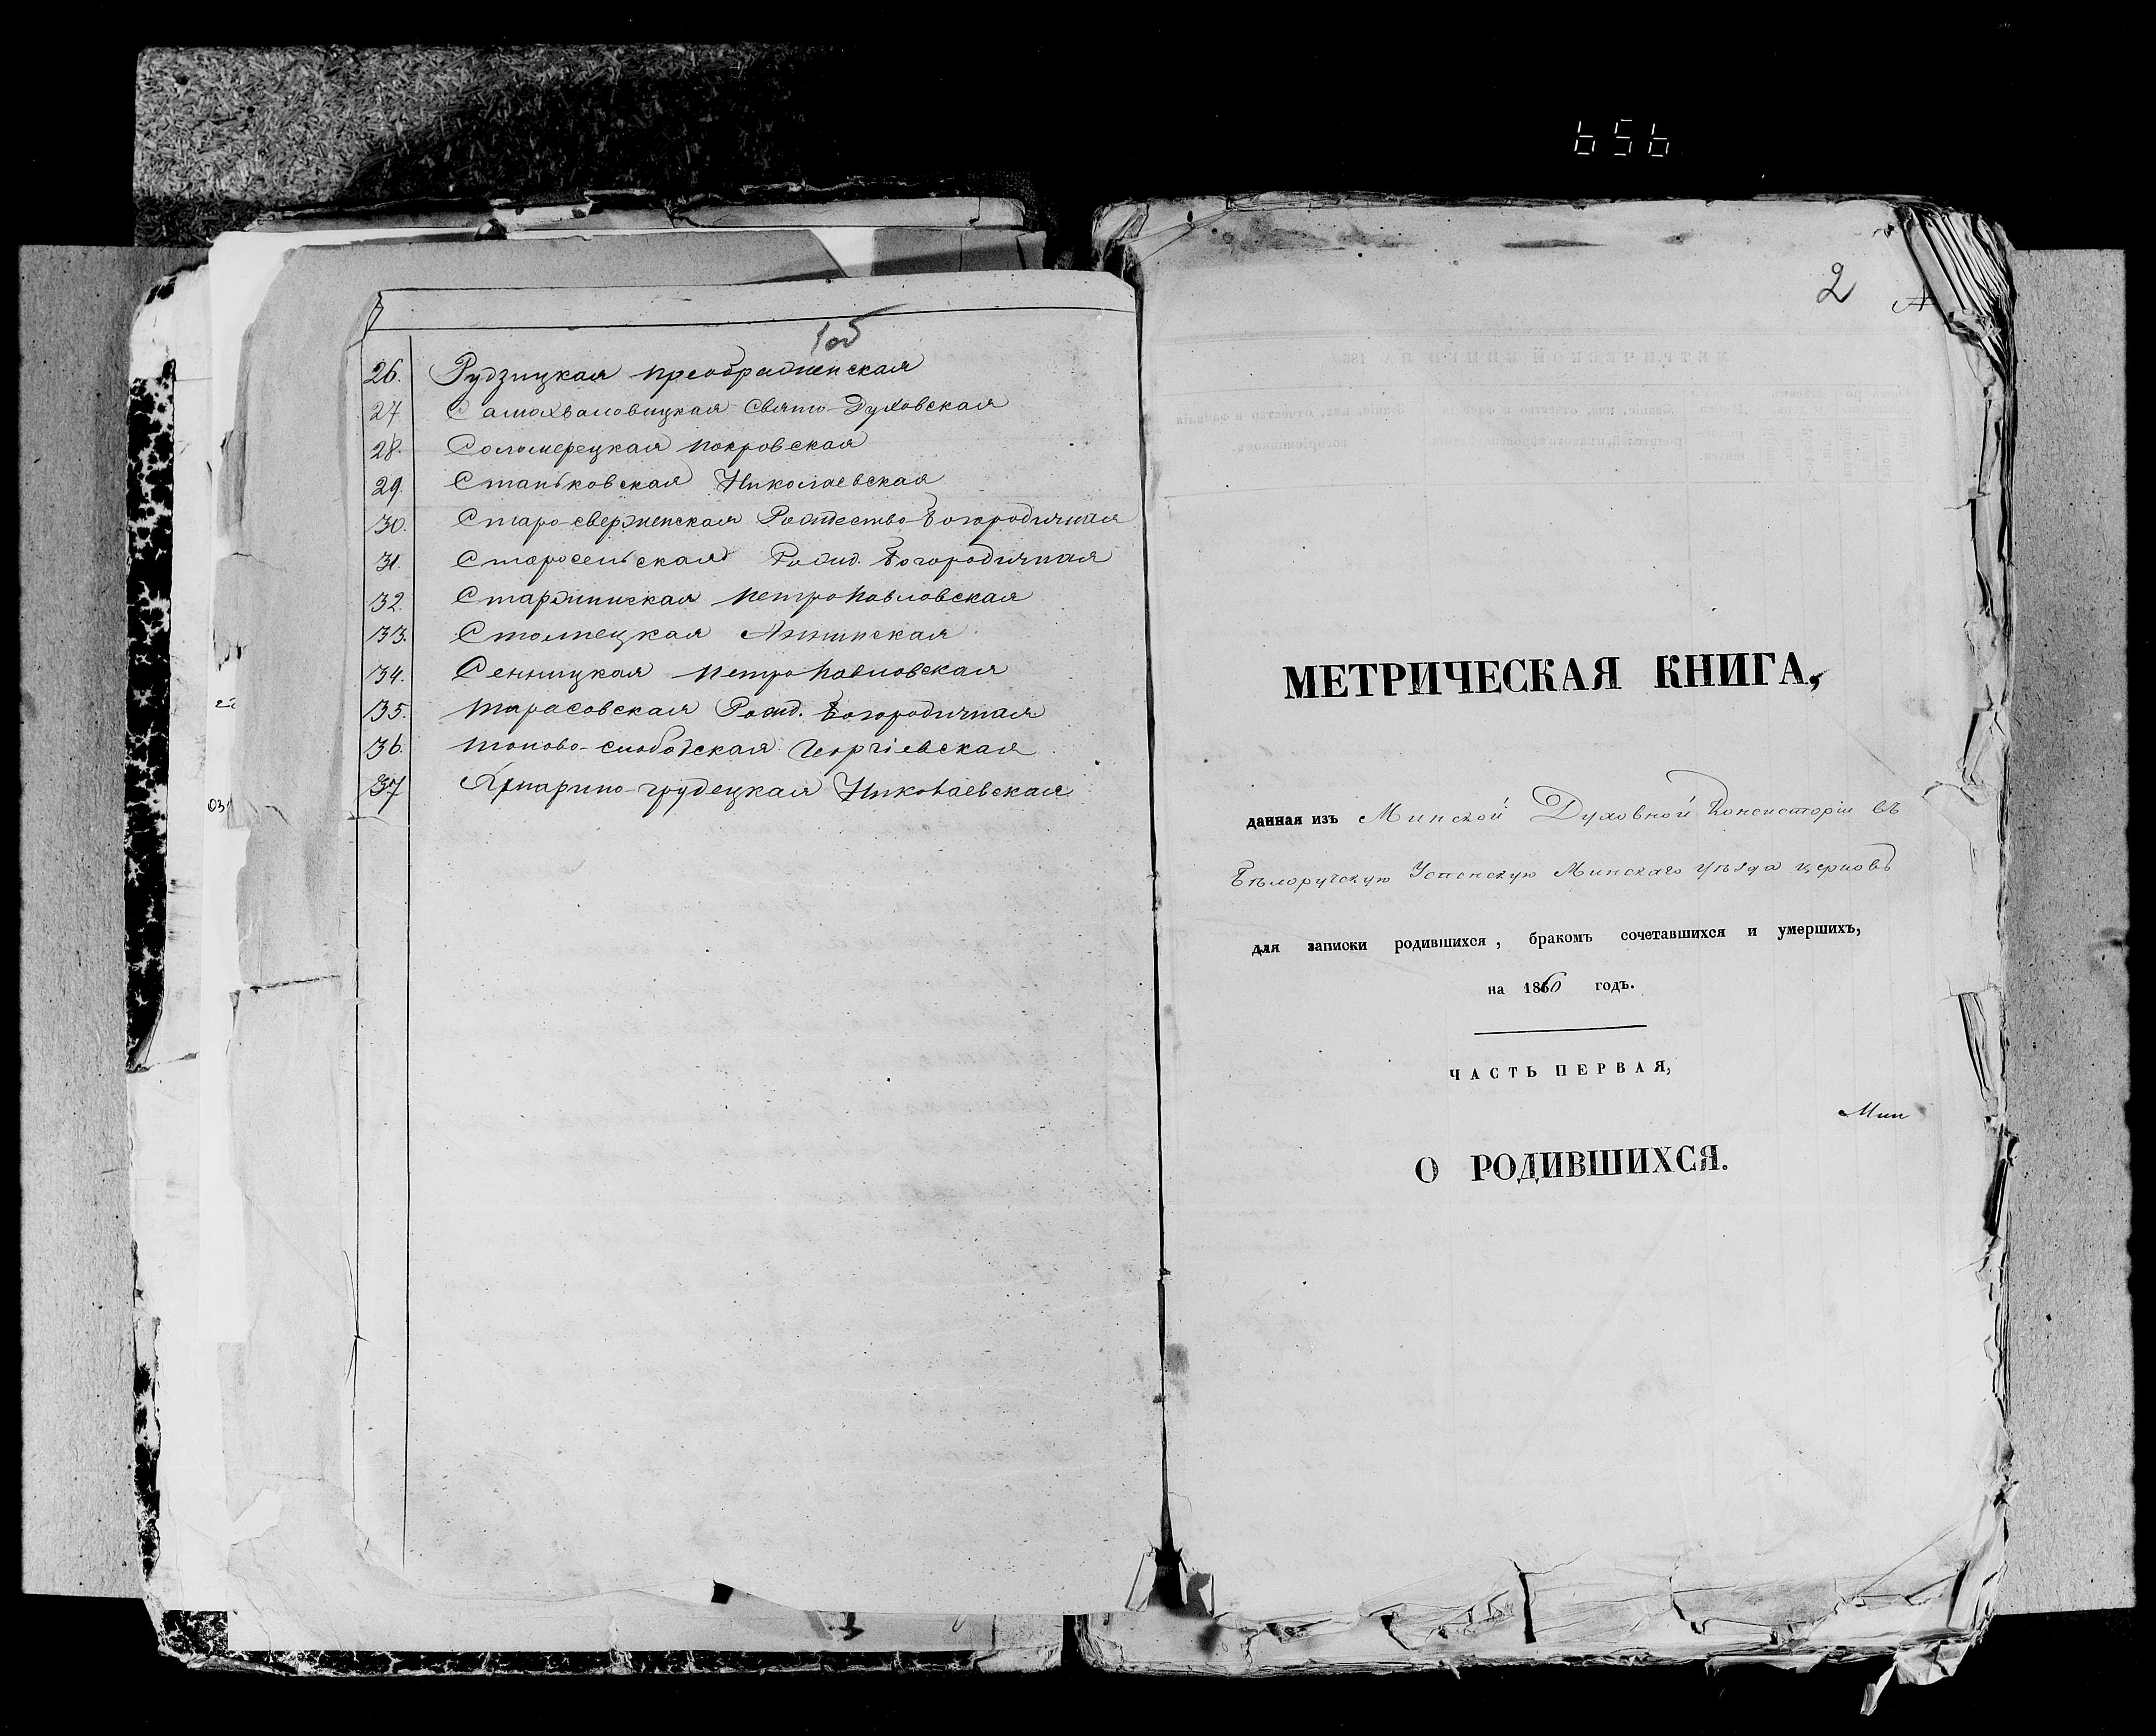 656
1об
26. Рудзицкая Преображенская
27 Самохваловицкая Свято-Духовская
28. Соломерецкая Покровская
29. Станьковская Николаевская
30. Старо-сверженская Рождество-Богородичная
31. Старосельская Рожд. Богородичная
32. Старжинская Петропавловская
33. Столпецкая Аннинская
34. Сенницкая Петропавловская
35. Тарасовская Рожд. Богородичная
36. Тоново-слободская Георгіевская
37 Ярмарино-грудецкая Николаевская
2
МЕТРИЧЕСКАЯ КНИГА,
данная изъ Минской Духовной Консисторіи въ
Бѣлоручскую Успенскую Минскаго Уѣзда церковь
для записки родившихся, бракомъ сочетавшихся и умершихъ,
на 1860 годъ.
ЧАСТЬ ПЕРВАЯ,
Мин
О РОДИВШИХСЯ.